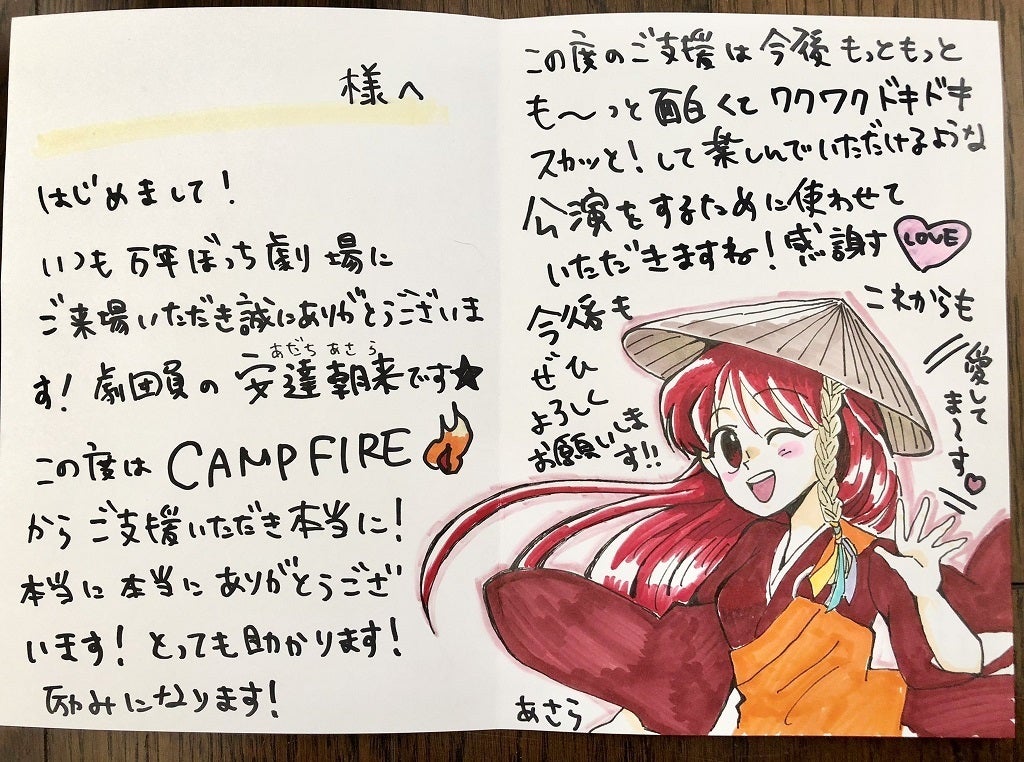 様へ
はじめまして！
いつも万年ぼっち劇場に
ご来場いただき誠にありがとうございま
あだち あさら
す！劇団員の 安達朝来です★
この度は CAMPFIRE
から ご支援いただき本当に！
本当に 本当に ありがとうござ
います！とっても助かります！
励みになります！
この度のご支援は 今後 もっともっと
も〜っと 面白くて ワクワクドキドキ
スカッと！して楽しんでいただけるような
公演をするために使わせて
いただきますね！感謝す
LOVE
今後も
ぜひ
よろしく
お願いしま
す!!
これからも
愛して
ま〜す♡
あさら